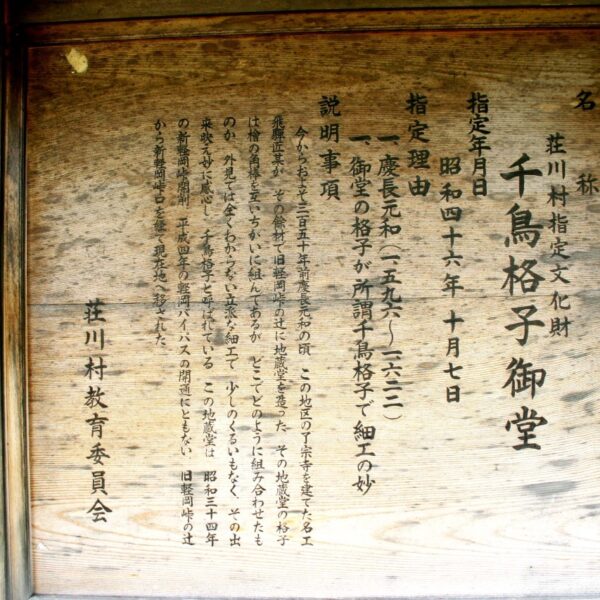 名称
荘川村指定文化財
千鳥格子御堂
指定年月日
昭和四十六年 十月七日
指定理由
一、慶長元和(一五九六~一六二二)
一、御堂の格子が所謂千鳥格子で細工の妙
説明事項
今からおよそ三百五十年前慶長元和の頃、この地区の了宗寺を建てた名工
飛騨匠某が、その餘材で旧軽岡峠の辻に地蔵堂を造った、その地蔵堂の格子
は檜の角棒を互いちがいに組んであるが、どこでどのように組み合わせたも
のか、外見では全くわからない立派な細工で、少しのくるいもなく、その出
来映え妙に感心し、千鳥格子と呼ばれている、この地蔵堂は、昭和三十四年
の新軽岡峠開削、平成四年の軽岡バイパスの開通にともない、旧軽岡峠の辻
から新軽岡峠口を経て現在地へ移された、
荘川村教育委員会